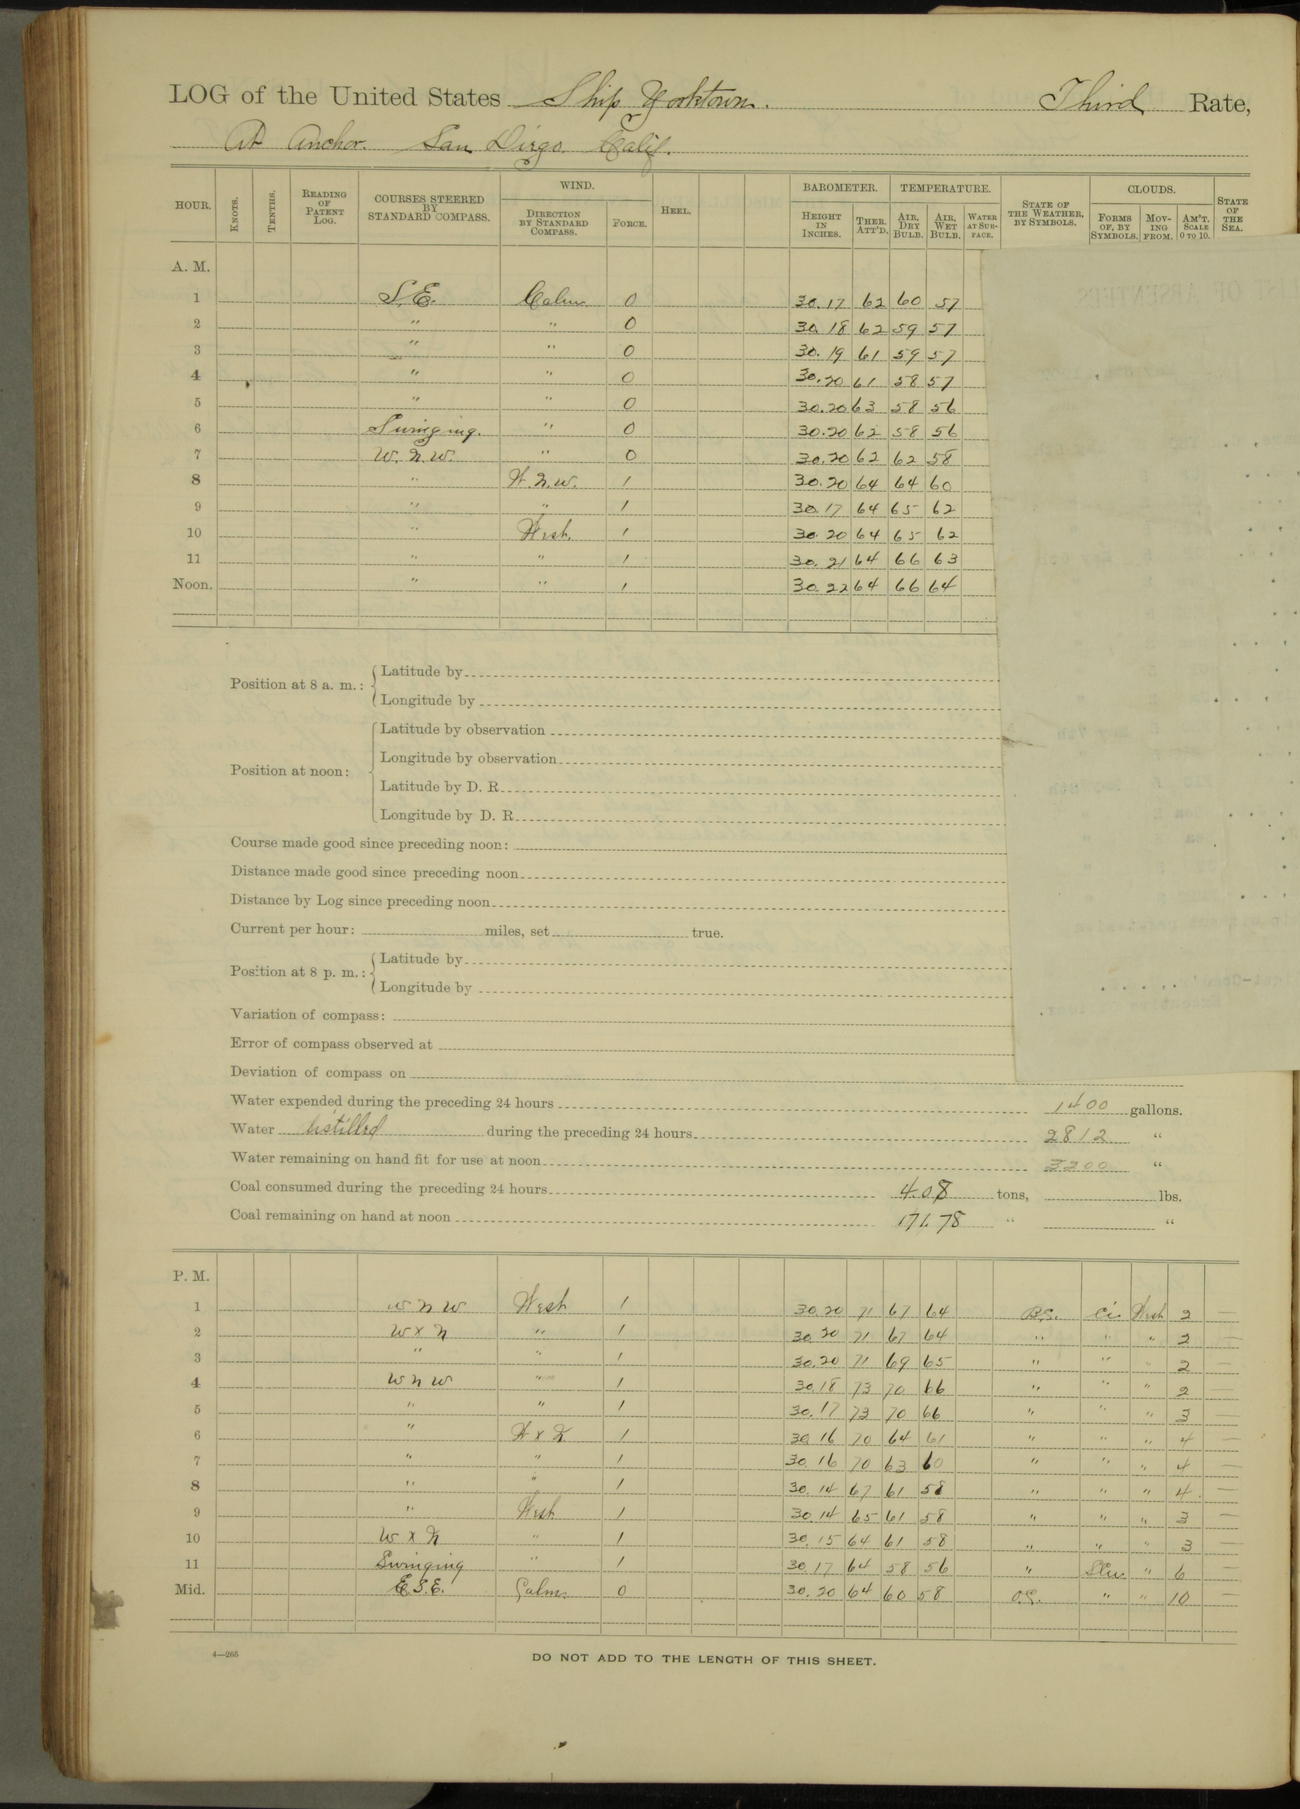 LOG of the United States Ship Yorktown. Third Rate,
At Anchor. San Diego. Calif.
HOUR. KNOTS. TENTHS. READING OF PATENT LOG. COURSES STEERED BY STANDARD COMPASS. WIND. DIRECTION BY STANDARD COMPASS. FORCE. HEEL. BAROMETER. HEIGHT IN INCHES. THER. ATT'D. TEMPERATURE. AIR, DRY BULB. AIR, WET BULB. WATER AT SURFACE. STATE OF THE WEATHER, BY SYMBOLS. CLOUDS. FORMS OF, BY SYMBOLS. MOVING FROM. AM'T. SCALE 0 TO 10. STATE OF THE SEA.
A. M.
1 S.E. Calm 0 30.17 62 60 57
2 " " 0 30.18 62 59 57
3 " " 0 30.19 61 59 57
4 " " 0 30.20 61 58 57
5 " " 0 30.20 63 58 56
6 Swinging. " 0 30.20 62 58 56
7 W.N.W. " 0 30.20 62 62 58
8 " W.N.W. 1 30.20 64 64 60
9 " " 1 30.17 64 65 62
10 " West. 1 30.20 64 65 62
11 " " 1 30.21 64 66 63
Noon. " " 1 30.22 64 66 64
Position at 8 a. m.: Latitude by
Longitude by
Position at noon: Latitude by observation
Longitude by observation
Latitude by D. R.
Longitude by D. R.
Course made good since preceding noon:
Distance made good since preceding noon
Distance by Log since preceding noon
Current per hour: miles, set true.
Position at 8 p. m.: Latitude by
Longitude by
Variation of compass:
Error of compass observed at
Deviation of compass on
Water expended during the preceding 24 hours 1400 gallons.
Water distilled during the preceding 24 hours 2812 "
Water remaining on hand fit for use at noon 3200 "
Coal consumed during the preceding 24 hours 4.08 tons, lbs.
Coal remaining on hand at noon 171.78 " "
P. M.
1 W N W West 1 30.20 71 67 64 B.C. Ci. West 2 —
2 W x N " 1 30.20 71 67 64 " " " 2 —
3 " " 1 30.20 71 69 65 " " " 2 —
4 W N W " 1 30.18 73 70 66 " " " 2 —
5 " " 1 30.17 73 70 66 " " " 3 —
6 " W x N 1 30.16 70 64 61 " " " 4 —
7 " " 1 30.16 70 63 60 " " " 4 —
8 " " 1 30.14 67 61 58 " " " 4 —
9 " West 1 30.14 65 61 58 " " " 3 —
10 W x N " 1 30.15 64 61 58 " " " 3 —
11 Swinging " 1 30.17 64 58 56 " " 6 —
Mid. E.S.E. Calm. 0 30.20 64 60 58 O.C. " " 10 —
4—265
DO NOT ADD TO THE LENGTH OF THIS SHEET.